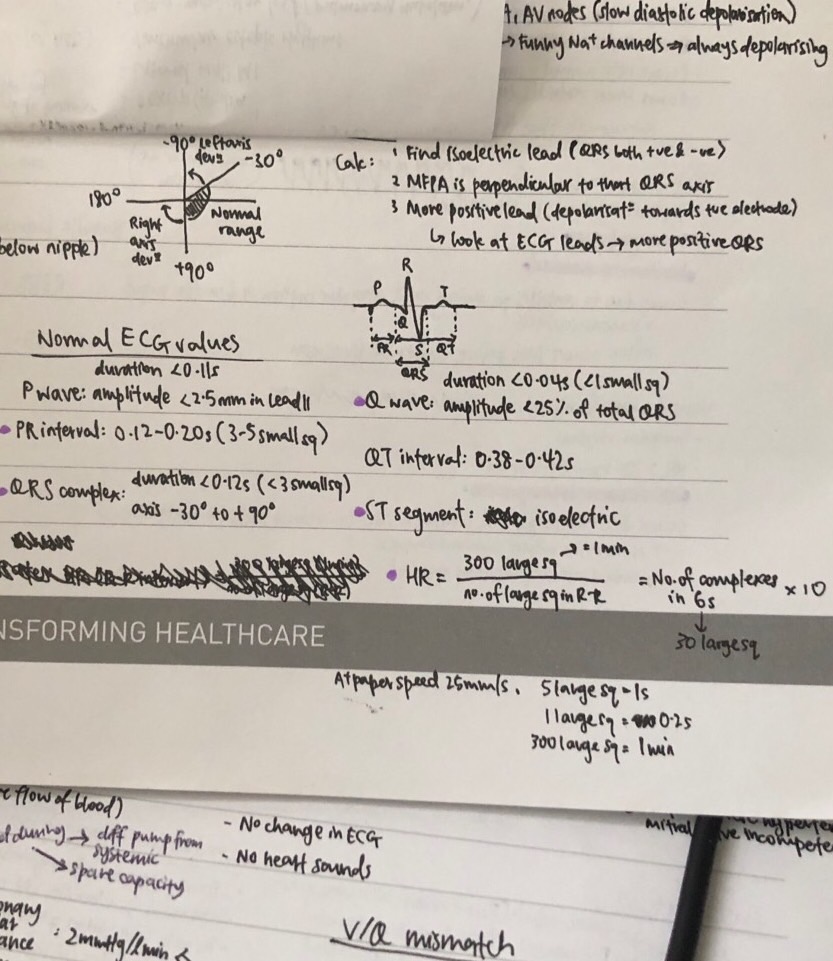 A, AV nodes (slow diastolic depolarisation)
→ Funny Na+ channels → always depolarising
-90° Left axis
devⁿ
-30°
180°
Normal
range
Right
axis
devⁿ
+90°
below nipple)
Calc: 1 Find isoelectric lead (QRS both +ve & -ve)
2 MFPA is perpendicular to that QRS axis
3 More positive lead (depolarisatⁿ towards +ve electrode)
↳ look at ECG leads → more positive QRS
R
P
T
Q
S
PR
QT
QRS
Normal ECG values
duration <0.11s
P wave: amplitude <2.5mm in lead II
• PR interval: 0.12-0.20s (3-5 small sq)
• QRS complex: duration <0.12s (<3 small sq)
axis -30° to +90°
duration <0.04s (<1 small sq)
• Q wave: amplitude <25% of total QRS
QT interval: 0.38-0.42s
• ST segment: isoelectric
• HR = 300 large sq → = 1min
no. of large sq in R-R
= No. of complexes x 10
in 6s
↓
30 large sq
NSFORMING HEALTHCARE
At paper speed 25mm/s, 5 large sq = 1s
1 large sq = 0.2s
300 large sq = 1 min
flow of blood)
→ diff pump from
systemic
→ spare capacity
- No change in ECG
- No heart sounds
mitral
ve incompete
onary
ance : 2mmHg/l/min
V/Q mismatch